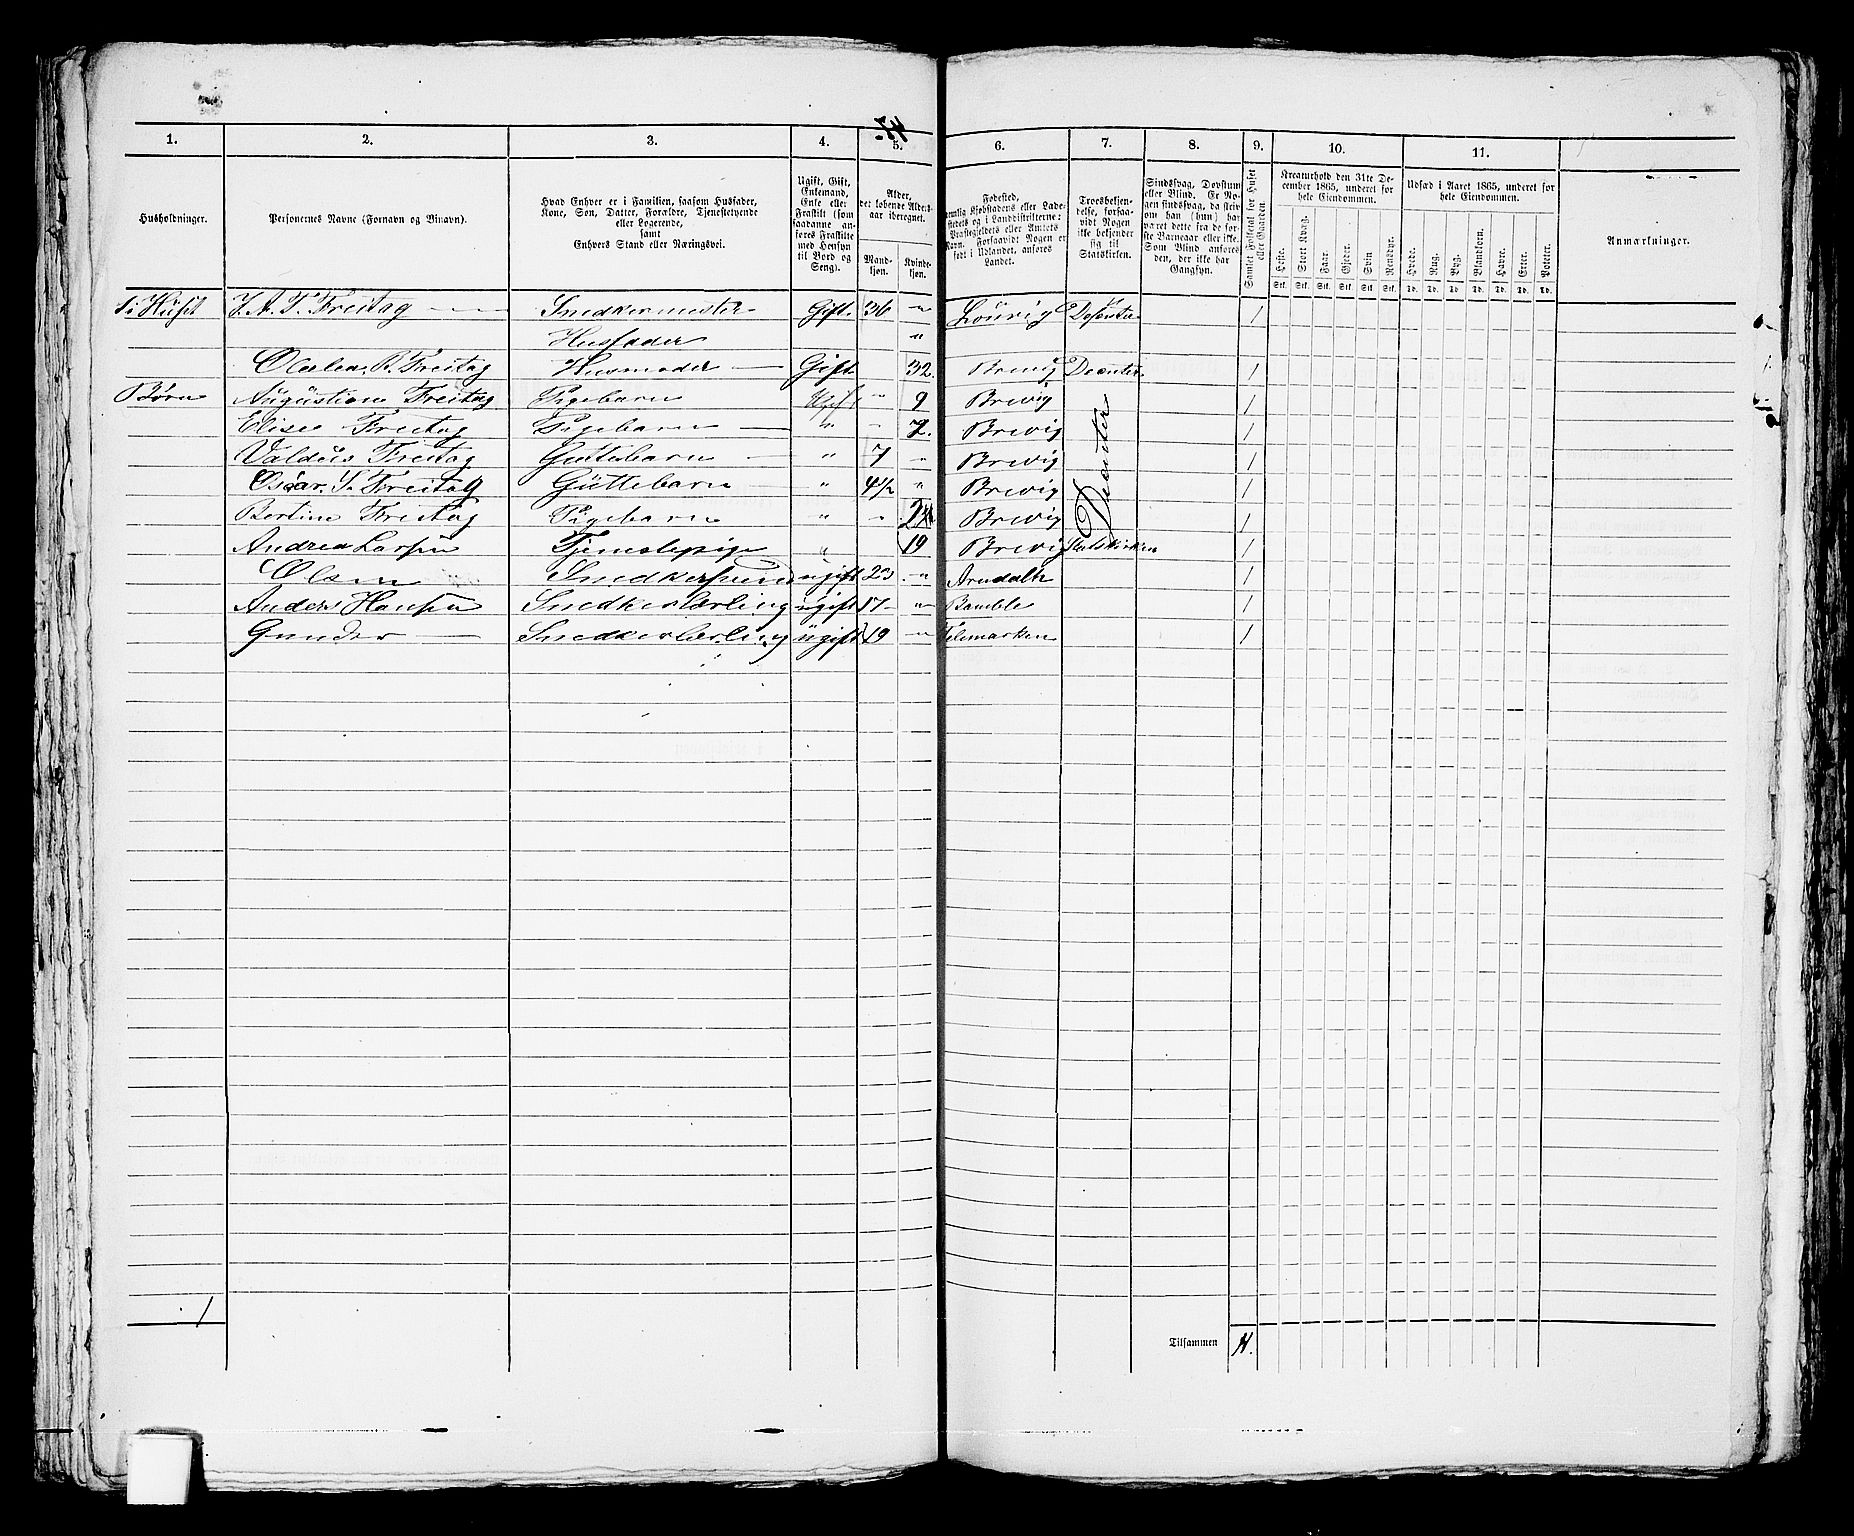 1. 2. 3. 4. 5. 6. 7. 8. 9. 10. 11.
Husholdninger.
Personernes Navne (Fornavn og Binavn).
Hvad Enhver er i Familien, saasom Husfader,
Kone, Søn, Datter, Forældre, Tjenestetyende
eller Logerende,
samt
Enhvers Stand eller Næringsvei.
Ugift, Gift,
Enkemand,
Enke eller
Fraskilt (som
saadanne an-
føres Fraskilte
med Hensyn
til Bord og
Seng).
Alder,
det løbende Alders-
aar iberegnet.
Mand-
kjøn.
Kvinde-
kjøn.
Fødested,
nemlig Kjøbstadens eller Lade-
stedets og i Landdistrikterne:
Præstegjeldets eller Amtets
Navn. Forsaavidt Nogen er
født i Udlandet, anføres
Landet.
Troesbekjen-
delse, forsaa-
vidt Nogen
ikke bekjender
sig til
Statskirken.
Sindssvag, Døvstum
eller Blind. Er No-
gen sindssvag, da skriv
om han (hun) har
været dette fra de før-
ste Barneaar eller ikke.
Som Blind anføres
den, der ikke har
Gangsyn.
Samlet Folketal for Huset
eller Gaarden
Kreaturhold den 31te De-
cember 1865, underet for
hele Eiendommen.
Heste. Stort Kvæg. Faar. Gjeder. Svin Rensdyr.
Stk. Stk. Stk. Stk. Stk. Stk.
Udsæd i Aaret 1865, underet for
hele Eiendommen.
Hvede. Rug. Byg. Blandkorn. Havre. Erter. Poteter.
Td. Td. Td. Td. Td. Td. Td.
Anmærkninger.
i Huset J. A. T. Freitag Snedkermester Gift. 36 " Lourvig Desenter 1
Husfader "
Olalea. B. Freitag Husmoder Gift 32. Brevig Desenter 1
Børn Augustiane Freitag Pigebarn Ugift " 9 Brevig 1
Elise Freitag Pigebarn " " 7. Brevig Desenter 1
Valdeis Freitag Guttebarn " 7 " Brevig 1
Oscar. S. Freitag Güttebarn " 4½ " Brevig 1
Bertine Freitag Pigebarn " " Brevig 1
Andrea Larsen Tjenestepige " 19 Brevig Statskirken 1
Olsen ugift 23 " Arndalh 1
Anders Hansen Snedkerlærling ugift 17 " Bamble 1
Gunder Snedkerlærling ugift 19 " Telemarken 1
1
Tilsammen 11.